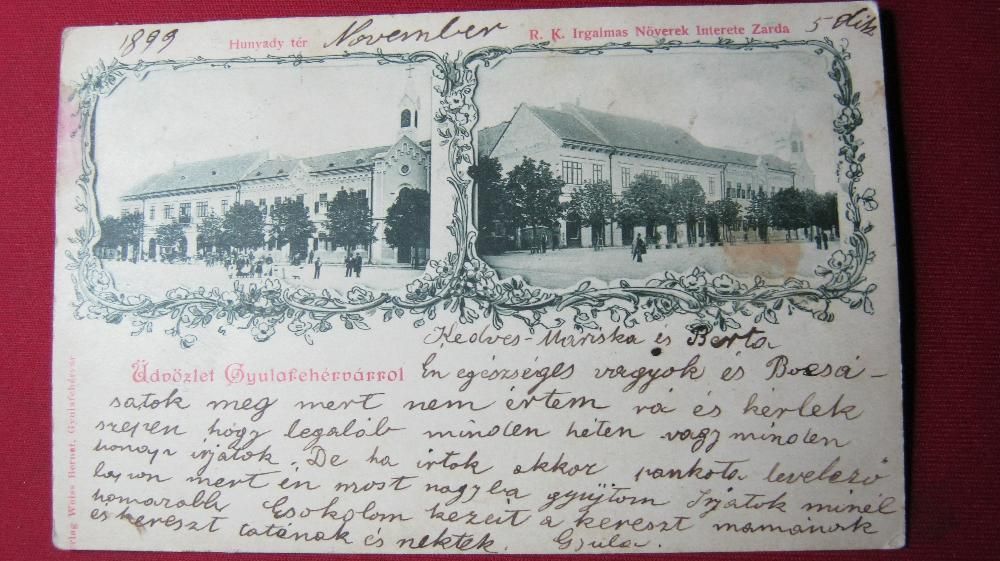 1899 November 5
Hunyady tér
R. K. Irgalmas Növerek Interete Zarda
Üdvözlet Gyulafehérvárrol
Kedves Mariska és Berta
Én egészséges vagyok és Bocsá-
satok meg mert nem értem ra és kérlek
szepen hogy legaláb minden héten vagy minden
honap irjatok. De ha irtok akkor pankota levelező
lapon mert én most nagyba gyüjtom Irjatok minél
hamarabb Csokolom kezeit a kereszt mamának
és kereszt tatának és nektek. Gyula.
Weiss Bernat, Gyulafehérvár